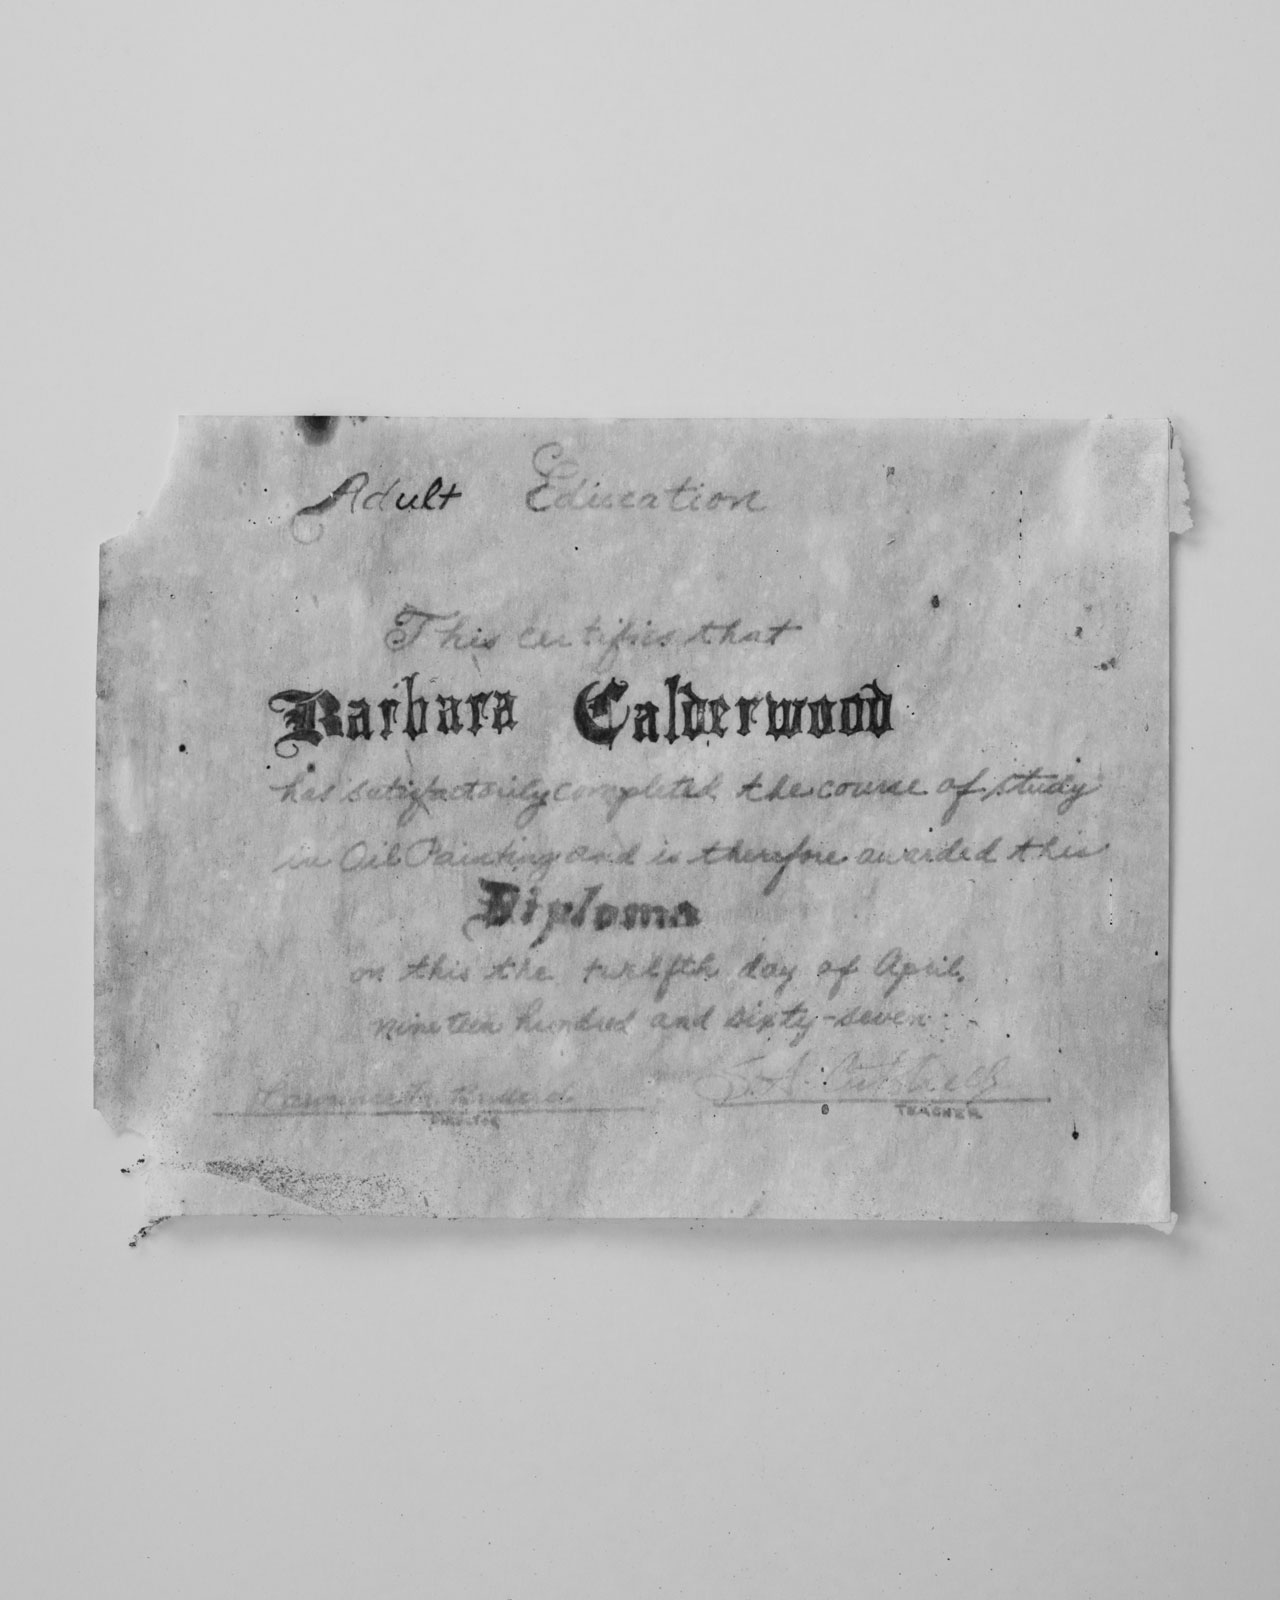 Adult Education
This certifies that
Barbara Calderwood
has satisfactorily completed the course of study
in Oil Painting and is therefore awarded this
Diploma
on this the twelfth day of April,
nineteen hundred and sixty-seven
Lawrence
DIRECTOR
TEACHER